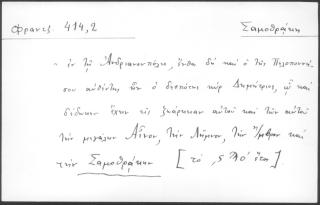 Φραντζ. 414,2 Σαμοθράκη
" ἐν τῇ Ἀνδριανουπόλει, ἔνθα δὴ καὶ ὁ τῆς Πελοποννή-
σου αὐθέντης ὢν ὁ δεσπότης κὺρ Δημήτριος, ᾧ καὶ
δέδωκεν ἔχειν εἰς ζωάρκειαν αὐτοῦ καὶ τῶν αὐτοῦ
τὴν μεγάλην Αἶνον, τὴν Λῆμνον τὴν καὶ
τὴν Σαμοθράκην [τὸ ἔτει].